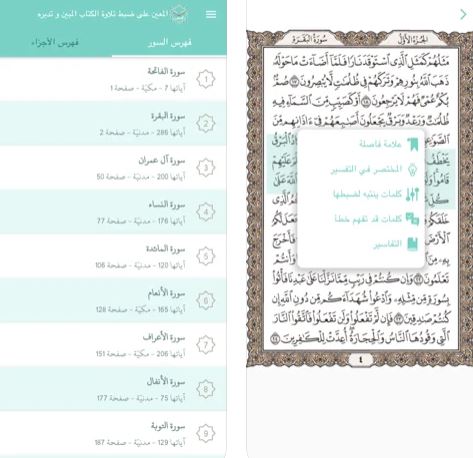 المعين على ضبط تلاوة الكتاب المبين و تدبره
فهرس السور
فهرس الأجزاء
سورة الفاتحة
آياتها 7 - مكيّة - صفحة 1
1
سورة البقرة
آياتها 286 - مدنيّة - صفحة 2
2
سورة آل عمران
آياتها 200 - مدنيّة - صفحة 50
3
سورة النساء
آياتها 176 - مدنيّة - صفحة 77
4
سورة المائدة
آياتها 120 - مدنيّة - صفحة 106
5
سورة الأنعام
آياتها 165 - مكيّة - صفحة 128
6
سورة الأعراف
آياتها 206 - مكيّة - صفحة 151
7
سورة الأنفال
آياتها 75 - مدنيّة - صفحة 177
8
سورة التوبة
آياتها 129 - مدنيّة - صفحة 187
9
الجزء الأول
سورة البقرة
مَثَلُهُمْ كَمَثَلِ ٱلَّذِي ٱسْتَوْقَدَ نَارًا فَلَمَّآ أَضَآءَتْ مَا حَوْلَهُۥ
ذَهَبَ ٱللَّهُ بِنُورِهِمْ وَتَرَكَهُمْ فِي ظُلُمَٰتٍ لَّا يُبْصِرُونَ ١٧ صُمٌّۢ
بُكْمٌ عُمْيٌ فَهُمْ لَا يَرْجِعُونَ ١٨ أَوْ كَصَيِّبٍ مِّنَ ٱلسَّمَآءِ فِيهِ
ظُلُمَٰتٌ وَرَعْدٌ وَبَرْقٌ يَجْعَلُونَ أَصَٰبِعَهُمْ فِيٓ ءَاذَانِهِم مِّنَ
علامة فاصلة
المختصر في التفسير
كلمات ينتبه لضبطها
كلمات قد تفهم خطأ
التفاسير
تَعْلَمُونَ ٢٢ وَإِن كُنتُمْ فِي رَيْبٍ مِّمَّا نَزَّلْنَا عَلَىٰ عَبْدِنَا فَأْتُوا۟
بِسُورَةٍ مِّن مِّثْلِهِۦ وَٱدْعُوا۟ شُهَدَآءَكُم مِّن دُونِ ٱللَّهِ إِن
كُنتُمْ صَٰدِقِينَ ٢٣ فَإِن لَّمْ تَفْعَلُوا۟ وَلَن تَفْعَلُوا۟ فَٱتَّقُوا۟ ٱلنَّارَ
ٱلَّتِي وَقُودُهَا ٱلنَّاسُ وَٱلْحِجَارَةُ أُعِدَّتْ لِلْكَٰفِرِينَ ٢٤
٤